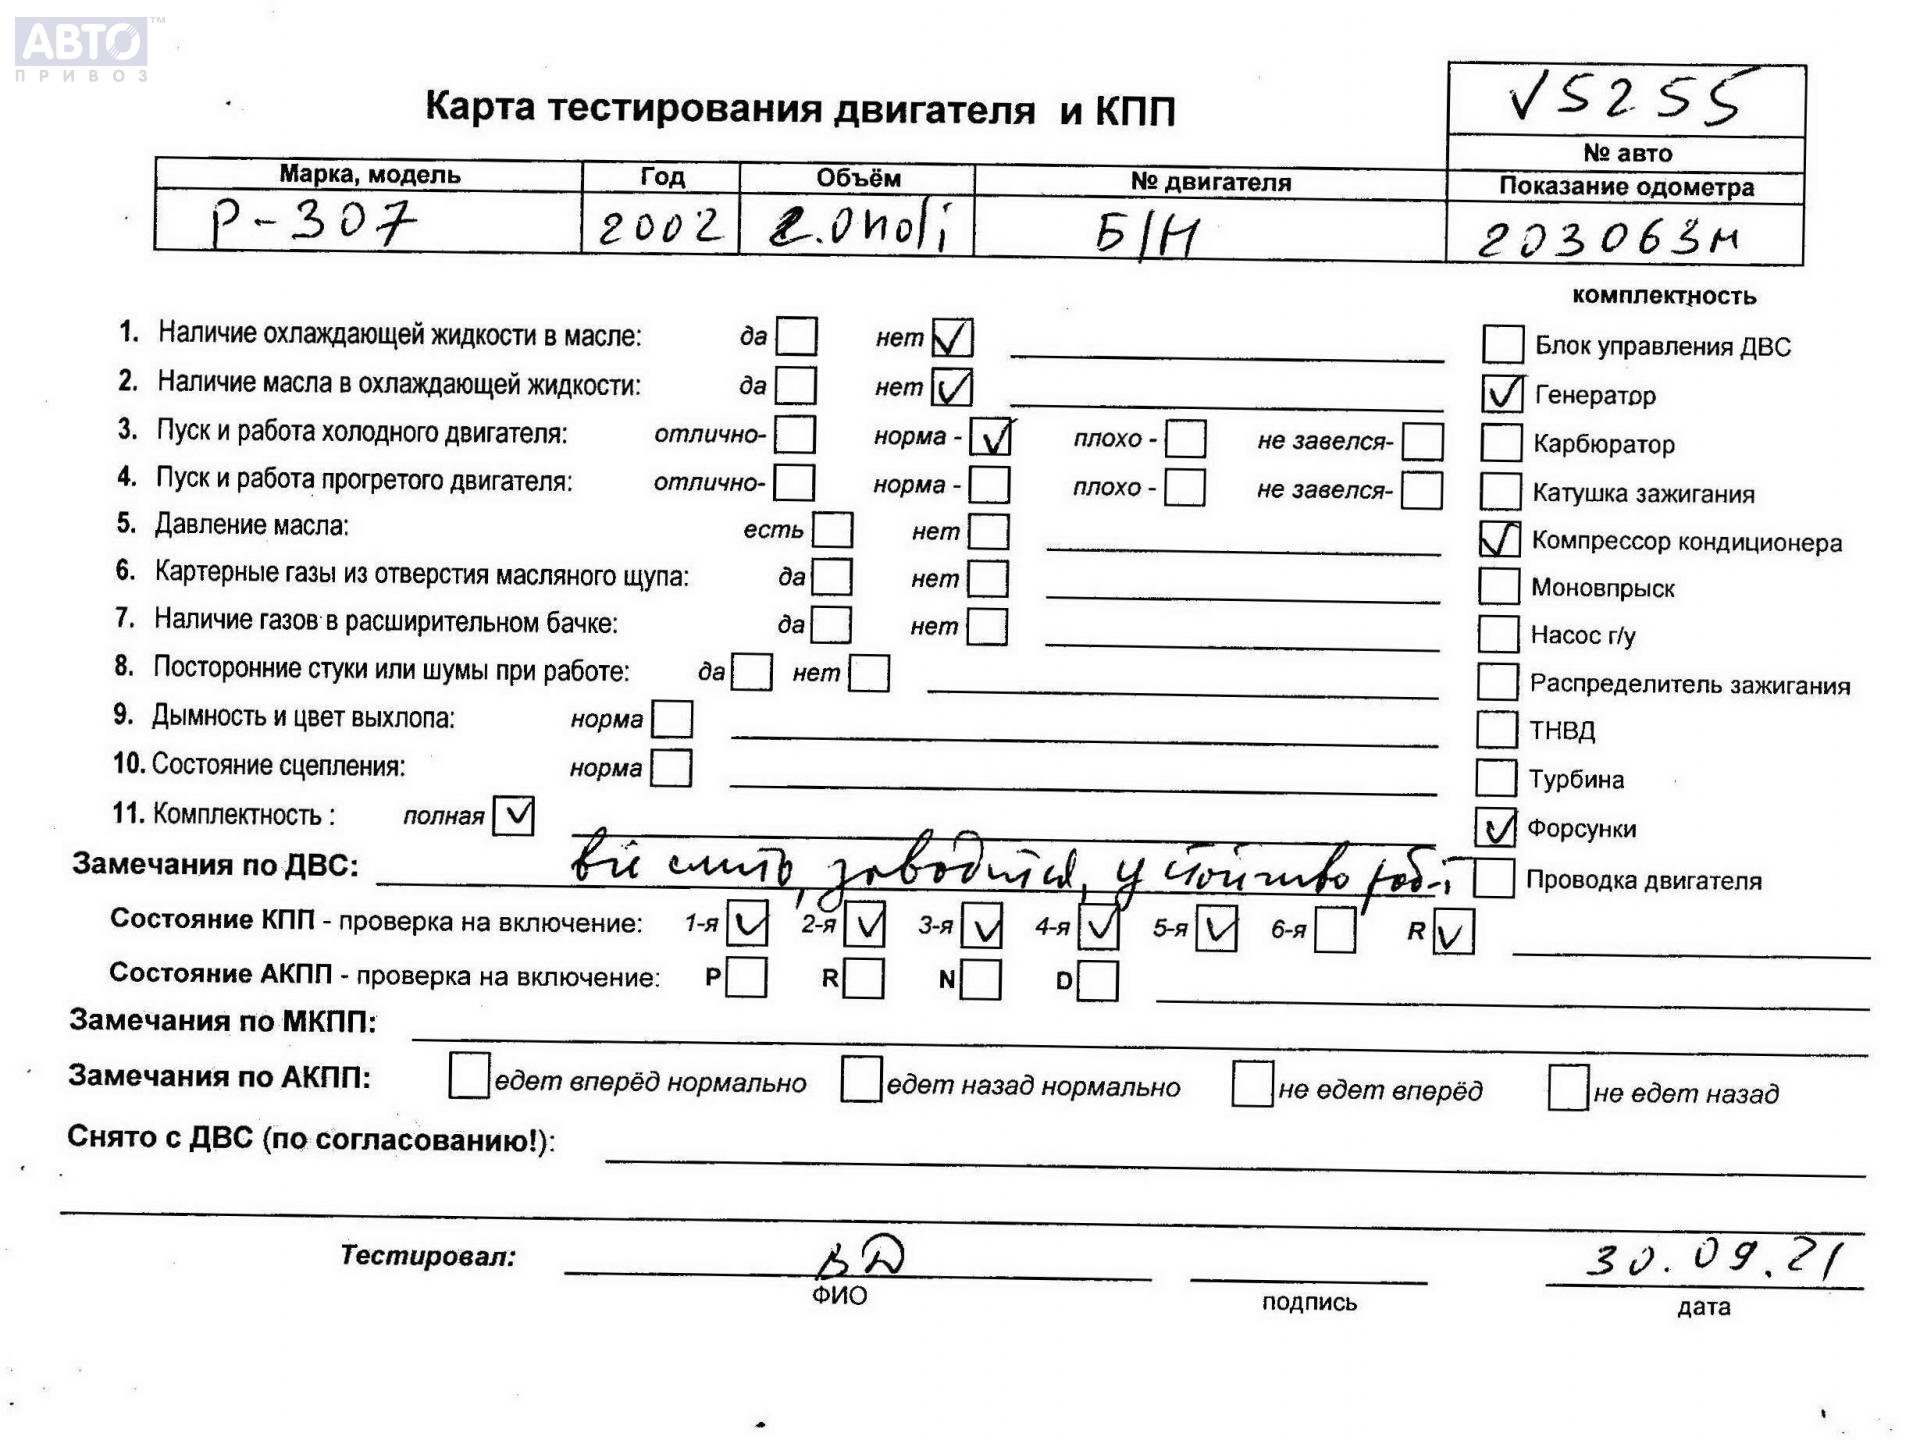 АВТО™
ПРИВОЗ
Карта тестирования двигателя и КПП
√5255
№ авто
Марка, модель Год Объём № двигателя Показание одометра
Р-307 2002 2.0 Б/Н 203063м
комплектность
1. Наличие охлаждающей жидкости в масле: да нет ✓ Блок управления ДВС
2. Наличие масла в охлаждающей жидкости: да нет ✓ ✓ Генератор
3. Пуск и работа холодного двигателя: отлично- норма - ✓ плохо - не завелся- Карбюратор
4. Пуск и работа прогретого двигателя: отлично- норма - плохо - не завелся- Катушка зажигания
5. Давление масла: есть нет ✓ Компрессор кондиционера
6. Картерные газы из отверстия масляного щупа: да нет Моновпрыск
7. Наличие газов в расширительном бачке: да нет Насос г/у
8. Посторонние стуки или шумы при работе: да нет Распределитель зажигания
9. Дымность и цвет выхлопа: норма ТНВД
10. Состояние сцепления: норма Турбина
11. Комплектность : полная ✓ ✓ Форсунки
Замечания по ДВС: заводится, Проводка двигателя
Состояние КПП - проверка на включение: 1-я ✓ 2-я ✓ 3-я ✓ 4-я ✓ 5-я ✓ 6-я R ✓
Состояние АКПП - проверка на включение: P R N D
Замечания по МКПП:
Замечания по АКПП: едет вперёд нормально едет назад нормально не едет вперёд не едет назад
Снято с ДВС (по согласованию!):
Тестировал: ВД 30.09.21
ФИО подпись дата